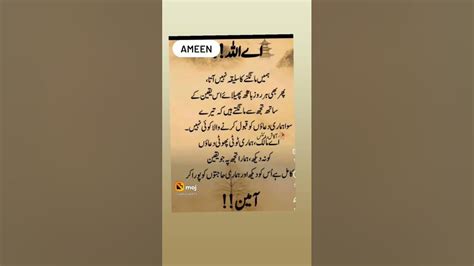 AMEEN
اے اللہ!
ہمیں مانگنے کا سلیقہ نہیں آتا،
پھر بھی ہر روز ہاتھ پھیلائے اس یقین کے
ساتھ تجھ سے مانگتے ہیں کہ تیرے
سوا ہماری دعاؤں کو قبول کرنے والا کوئی نہیں۔
اے مالک، ہماری ٹوٹی پھوٹی دعاؤں
کو نہ دیکھ، ہمارا تجھ پہ جو یقین
کامل ہے اُس کو دیکھ اور ہماری حاجتوں کو پورا کر
moj
آمین!!